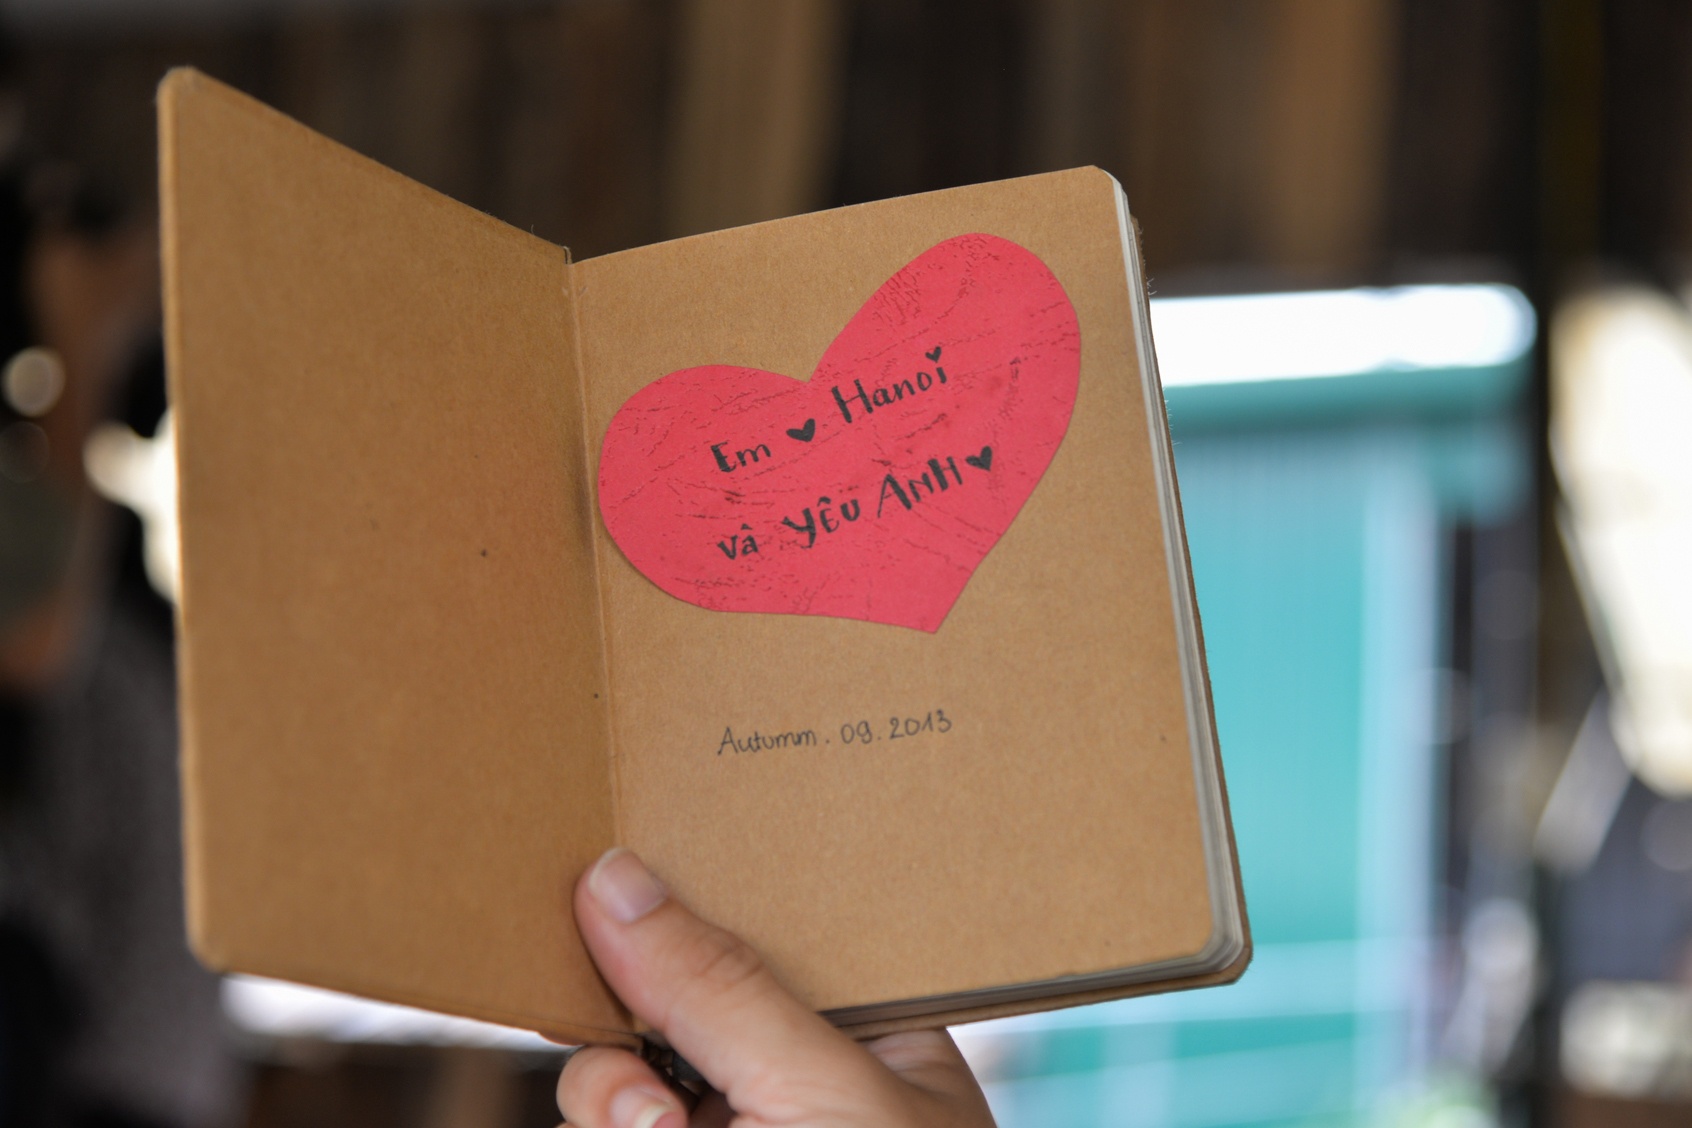 Em ♥ Hanoi
vâ YÊU ANH ♥
Autumm . 09 . 2013